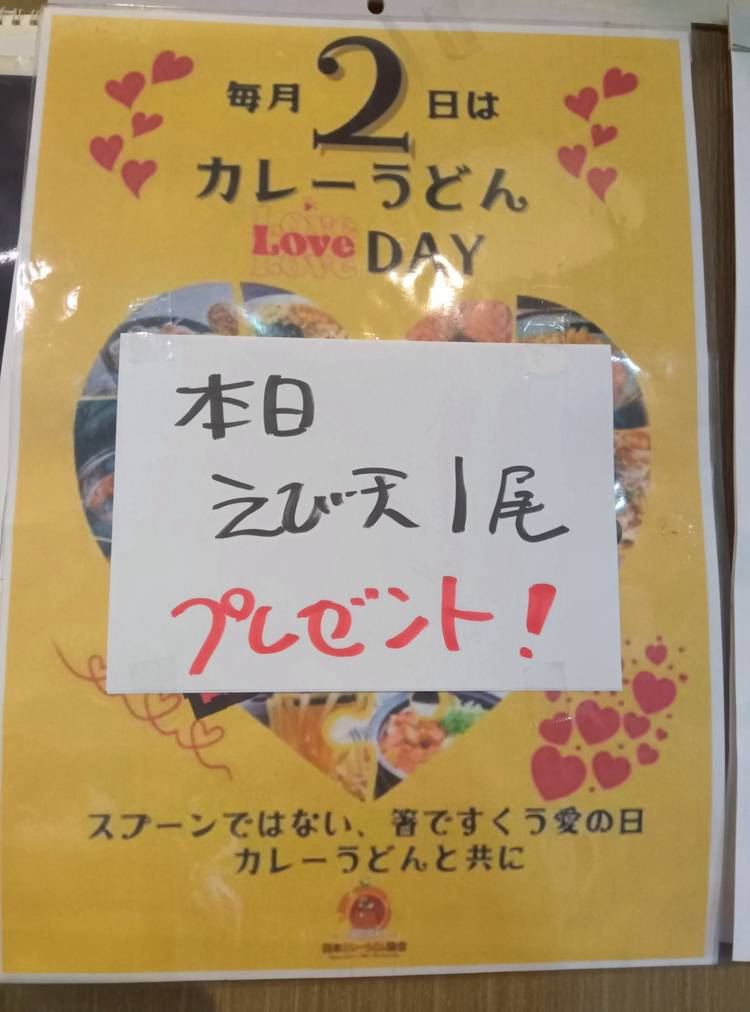 毎月2日は
カレーうどん
Love DAY
本日
えび天1尾
プレゼント!
スプーンではない、箸ですくう愛の日
カレーうどんと共に